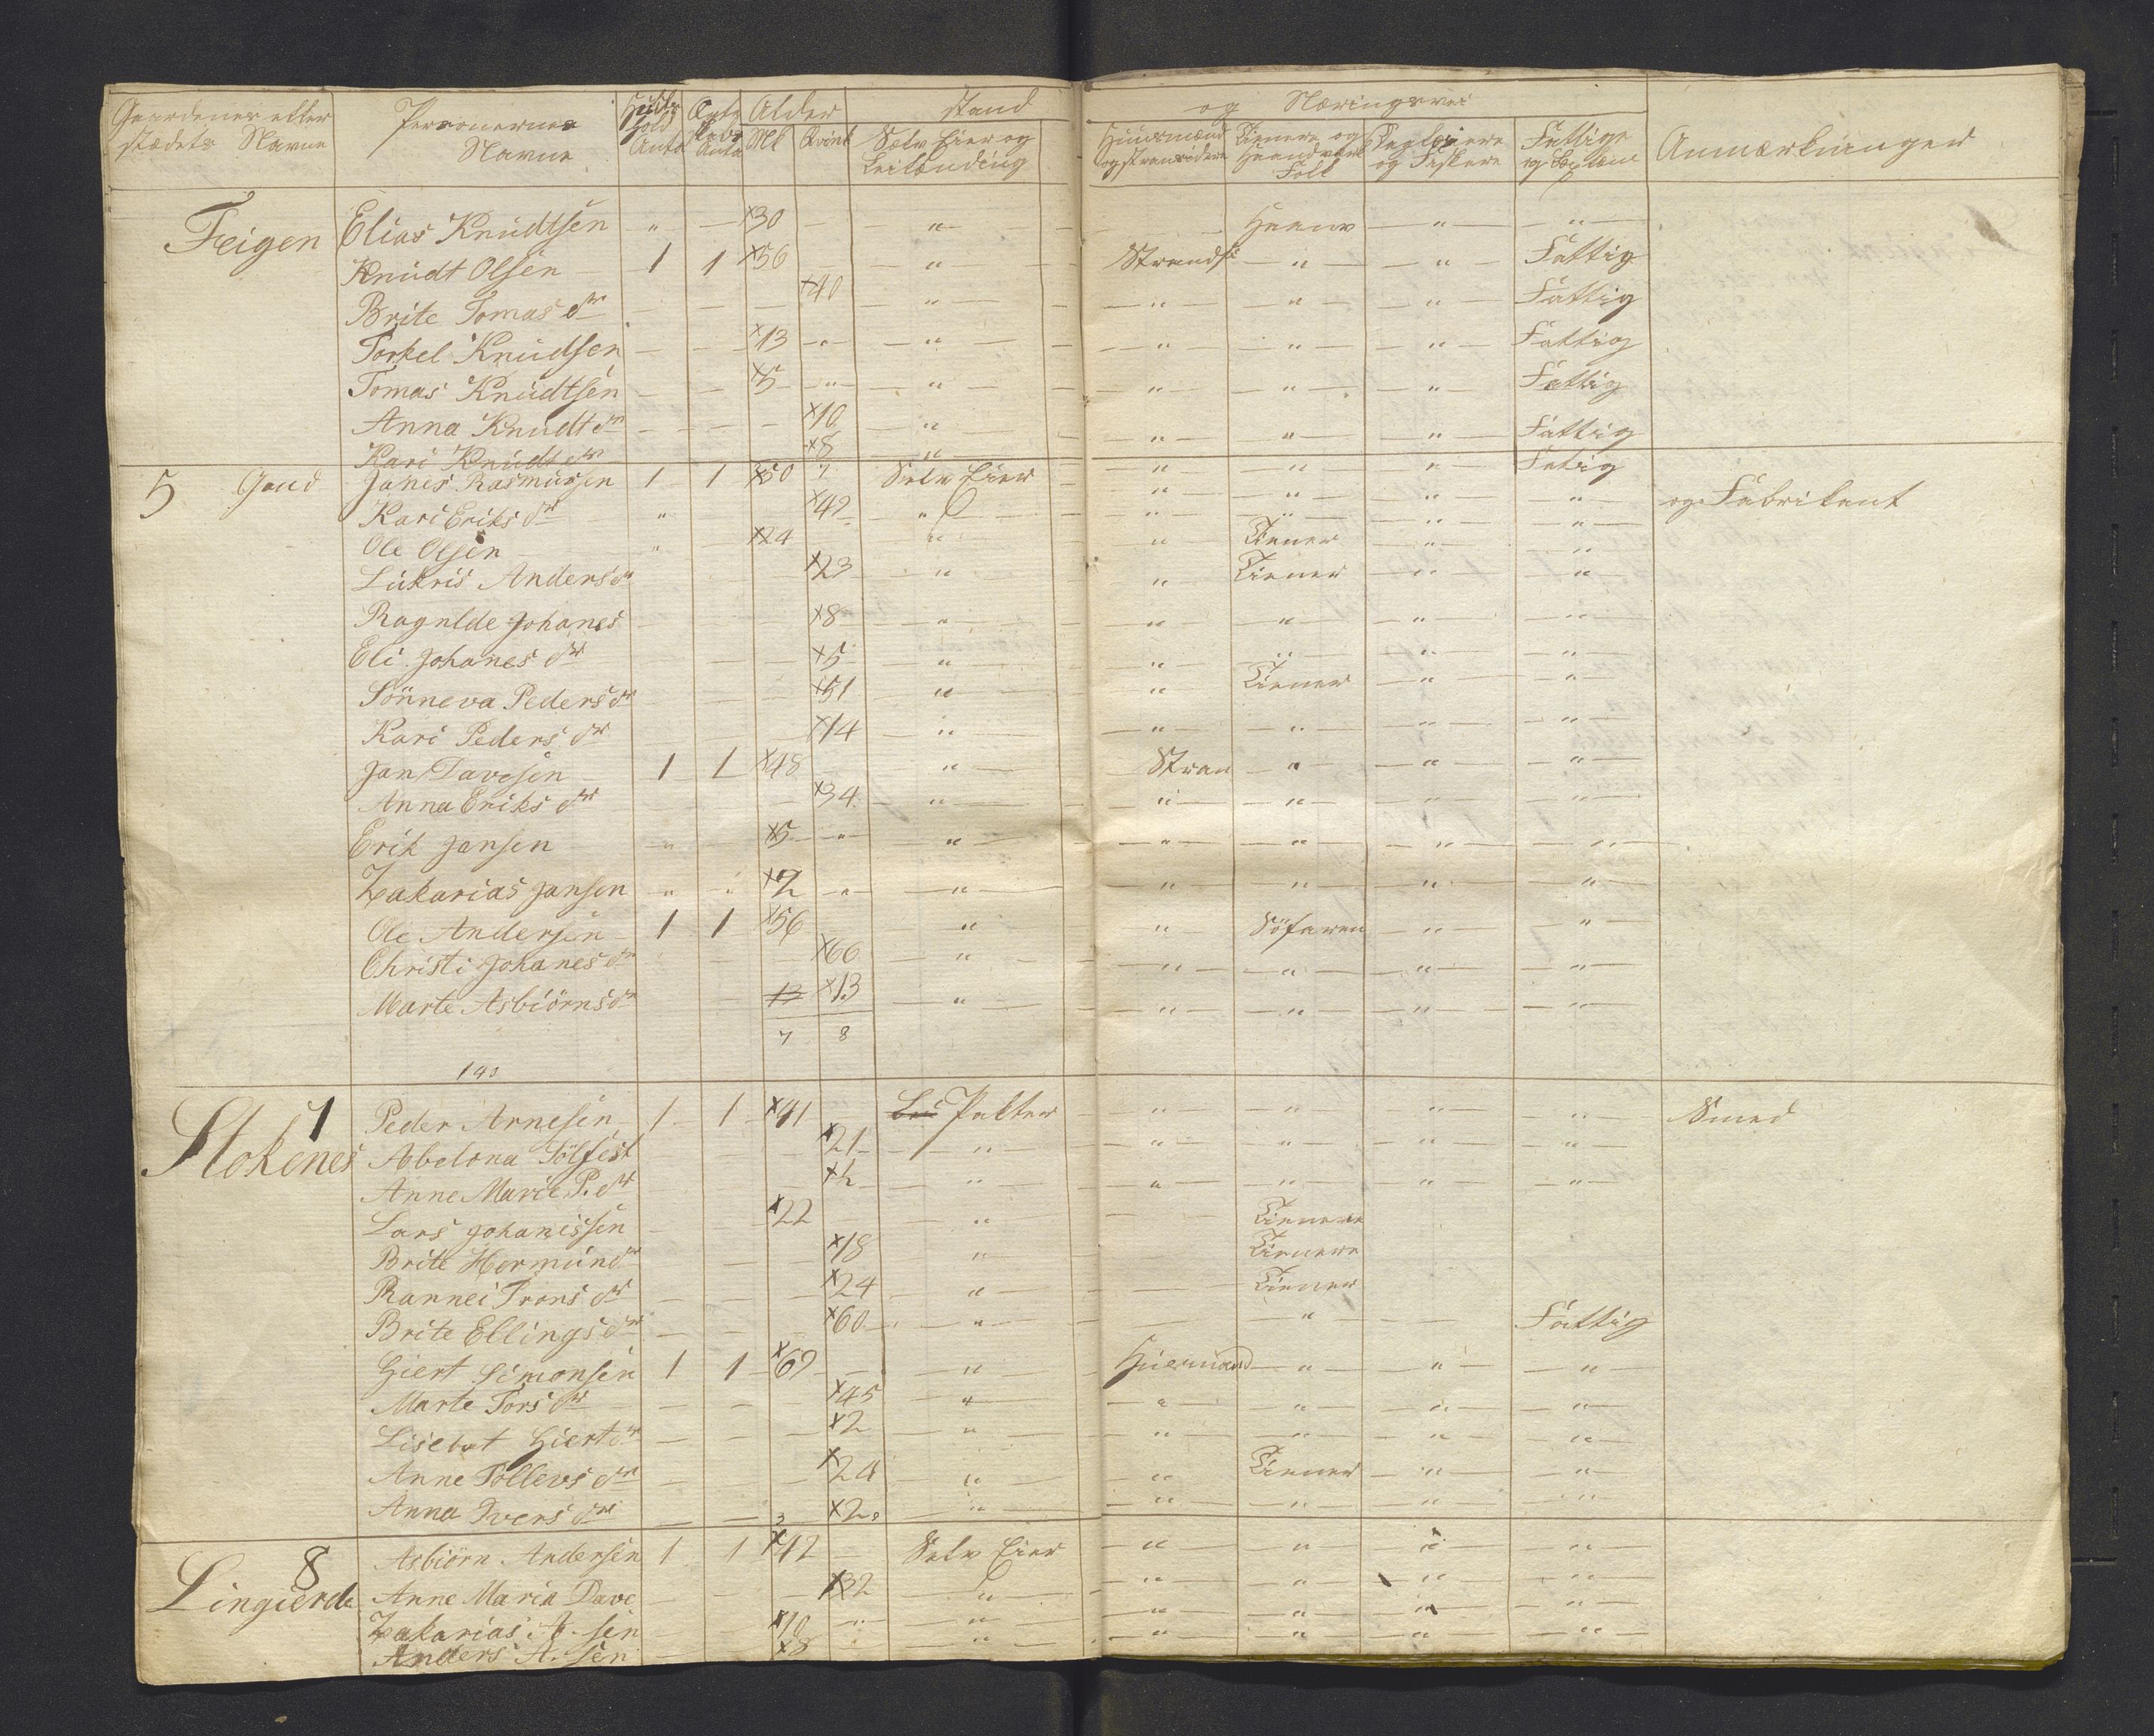 Gaardenes eller stædets Navne | Personernes Navne | Huus hold Antal | Alder | stand og Næringsvei
Mk | Qvink | Selv Eier og Leilænding | Huusmænd og strandsidere | Tienere og Haandværk Folk | og Fiskere | Fattige | Anmærkninger
Feigen Elias Knudtsen " — x30 — — " — "  — " —
Knudt Olsen — 1 1 x56 — " — Strands — " — " — Fattig
Brite Tomas dtr — — — x40 — " — " — " — " — Fattig
Torkel Knudsen — — x13 — " — " — " — " — Fattig
Tomas Knudtsen — — x5 — " — " — " — " — " — Fattig
Anna Knudt dtr — — — x10 " — " — " — " — Fattig
Kari Knudt dtr x8 " — " — " — " Fatig
5 Gaud Janes Rasmusen 1 1 x50 7 Selv Eier — " — " — " — " og Fabrikant
Kari Eriks dtr " x42 — " — " — " — " — "
Ole Olsen " — x24 " — " Tiener — " — "
Lukris Anders dr x23 " — " Tiener — " — "
Ragnlde Johanes x8 — " — " — " — " — " —
Eli Johanes dtr x5 " — " — " — " — " —
Sönneva Peders dr x51 — " — " Tiener — " — "
Kari Peders dtr x14 — " — " — " — " — " —
Jan Davesen — 1 1 x48 " — Stran — " — " — "
Anna Eriks dtr — x34 — " — " — " — " — " —
Erik Jansen " x5 — " " — " — " — " — " —
Zakarias Jansen " " x2 — " — " — " — " — " — " —
Ole Andersen 1 1 x56 " — " Söfaren — " — "
Christi Johanes dr — — x66 — " — " — " — " — " —
Marte Asbiörns dr — 13 x13 — " — " — " — " — " —
7 8
140
Slokenes 1 Peder Arnesen 1 1 x41 Lei Pakter — " — " — " — " Smed
Abelona Sölfest — — x21 — " — " — " — " — "
Anne Marie P. dtr x2 — " — " — " — " — "
Lars Johanissen — — x22 — " — Tienere
Brite Hermund dr — x18 " — Tienere
Rannei Trons dtr — — — x24 — " — Tiener
Brite Ellings dtr — — x60 — " — " — — Fattig
Giert Simonsen 1 1 x69 — " — Huusmand — " — " — "
Marte Tors dtr — — x45 — " — " — " — " — " —
Lisebet Giert dr — — — x2 — " — " — " — " — "
Anne Tollevs dtr — — x24 — " — " Tiener — " — "
Anna Ivers dtr — — 3 x20 — " — " — " — " — "
Lingierde 8 Asbiörn Andersen 1 1 x42 — Selv Eier — " — " — " — " —
Anne Maria Dave — x32 — " — " — " — " — " —
Zakarias A. sen x10 — " — " — " — " — " — " —
Anders A. sen x8 — " — " — " — " — " —